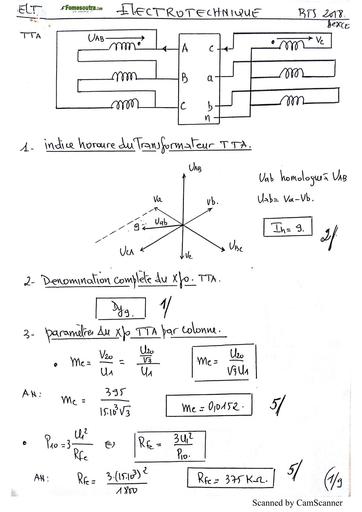 ELT
Fomesoutra.com
ELECTROTECHNIQUE
BTS 2018.
TTA
UAB
A
c
Vc
B
a
C
b
n
1- indice horaire du Transformateur TTA.
UAB
Va
Vb.
Uab
9
UCA
Vc
UBC
Uab homologue à UAB
Uab = Va - Vb.
Ih = 9.
2/
2- Denomination complète du Xfo. TTA.
Dy9.
1/
3- paramètres du xfo TTA par colonne.
• mc = V20/U1 = U20/√3/U1
mc = U20/√3U1
AN: mc = 395/15.10³√3
mc = 0,0152.
5/
• P10 = 3 U1²/Rfc ⇔ Rfc = 3U1²/P10.
AN: Rfc = 3.(15.10³)²/1800
Rfc = 375 KΩ.
5/
(1/9
Scanned by CamScanner